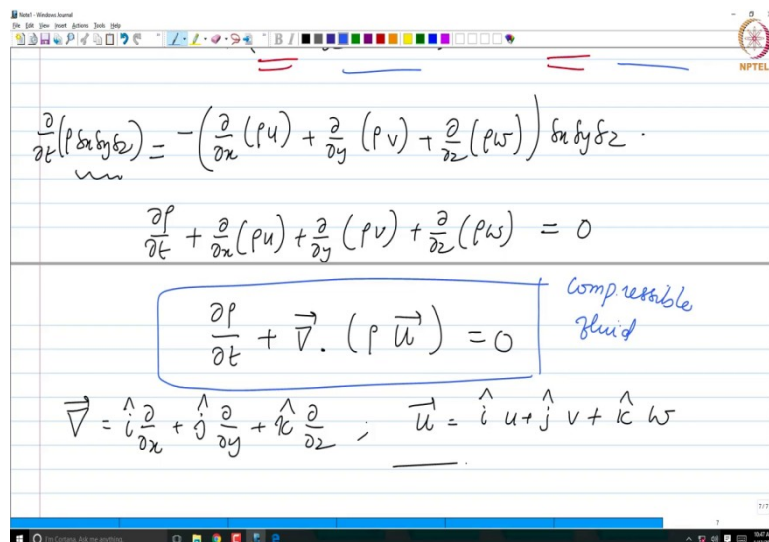 Note1 - Windows Journal
File Edit View Insert Actions Tools Help
NPTEL
∂/∂t (ρ δx δy δz) = -(∂/∂x (ρu) + ∂/∂y (ρv) + ∂/∂z (ρw)) δx δy δz .
∂ρ/∂t + ∂/∂x (ρu) + ∂/∂y (ρv) + ∂/∂z (ρw) = 0
compressible
fluid
∂ρ/∂t + ∇⃗ . (ρ u⃗) = 0
∇⃗ = î ∂/∂x + ĵ ∂/∂y + k̂ ∂/∂z ; u⃗ = î u + ĵ v + k̂ w
7/7
7
I'm Cortana. Ask me anything.
10:47 AM